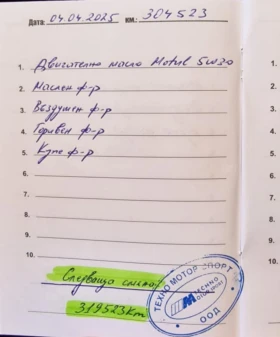 Дата: 04.04.2025 км.: 304523
1. Двигателно масло Motul 5w30
2. Маслен ф-р
3. Въздушен ф-р
4. Горивен ф-р
5. Купе ф-р
6.
7.
8.
9.
10.
Следваща смяна
319523km
ТЕХНО МОТОР СПОРТ
ООД